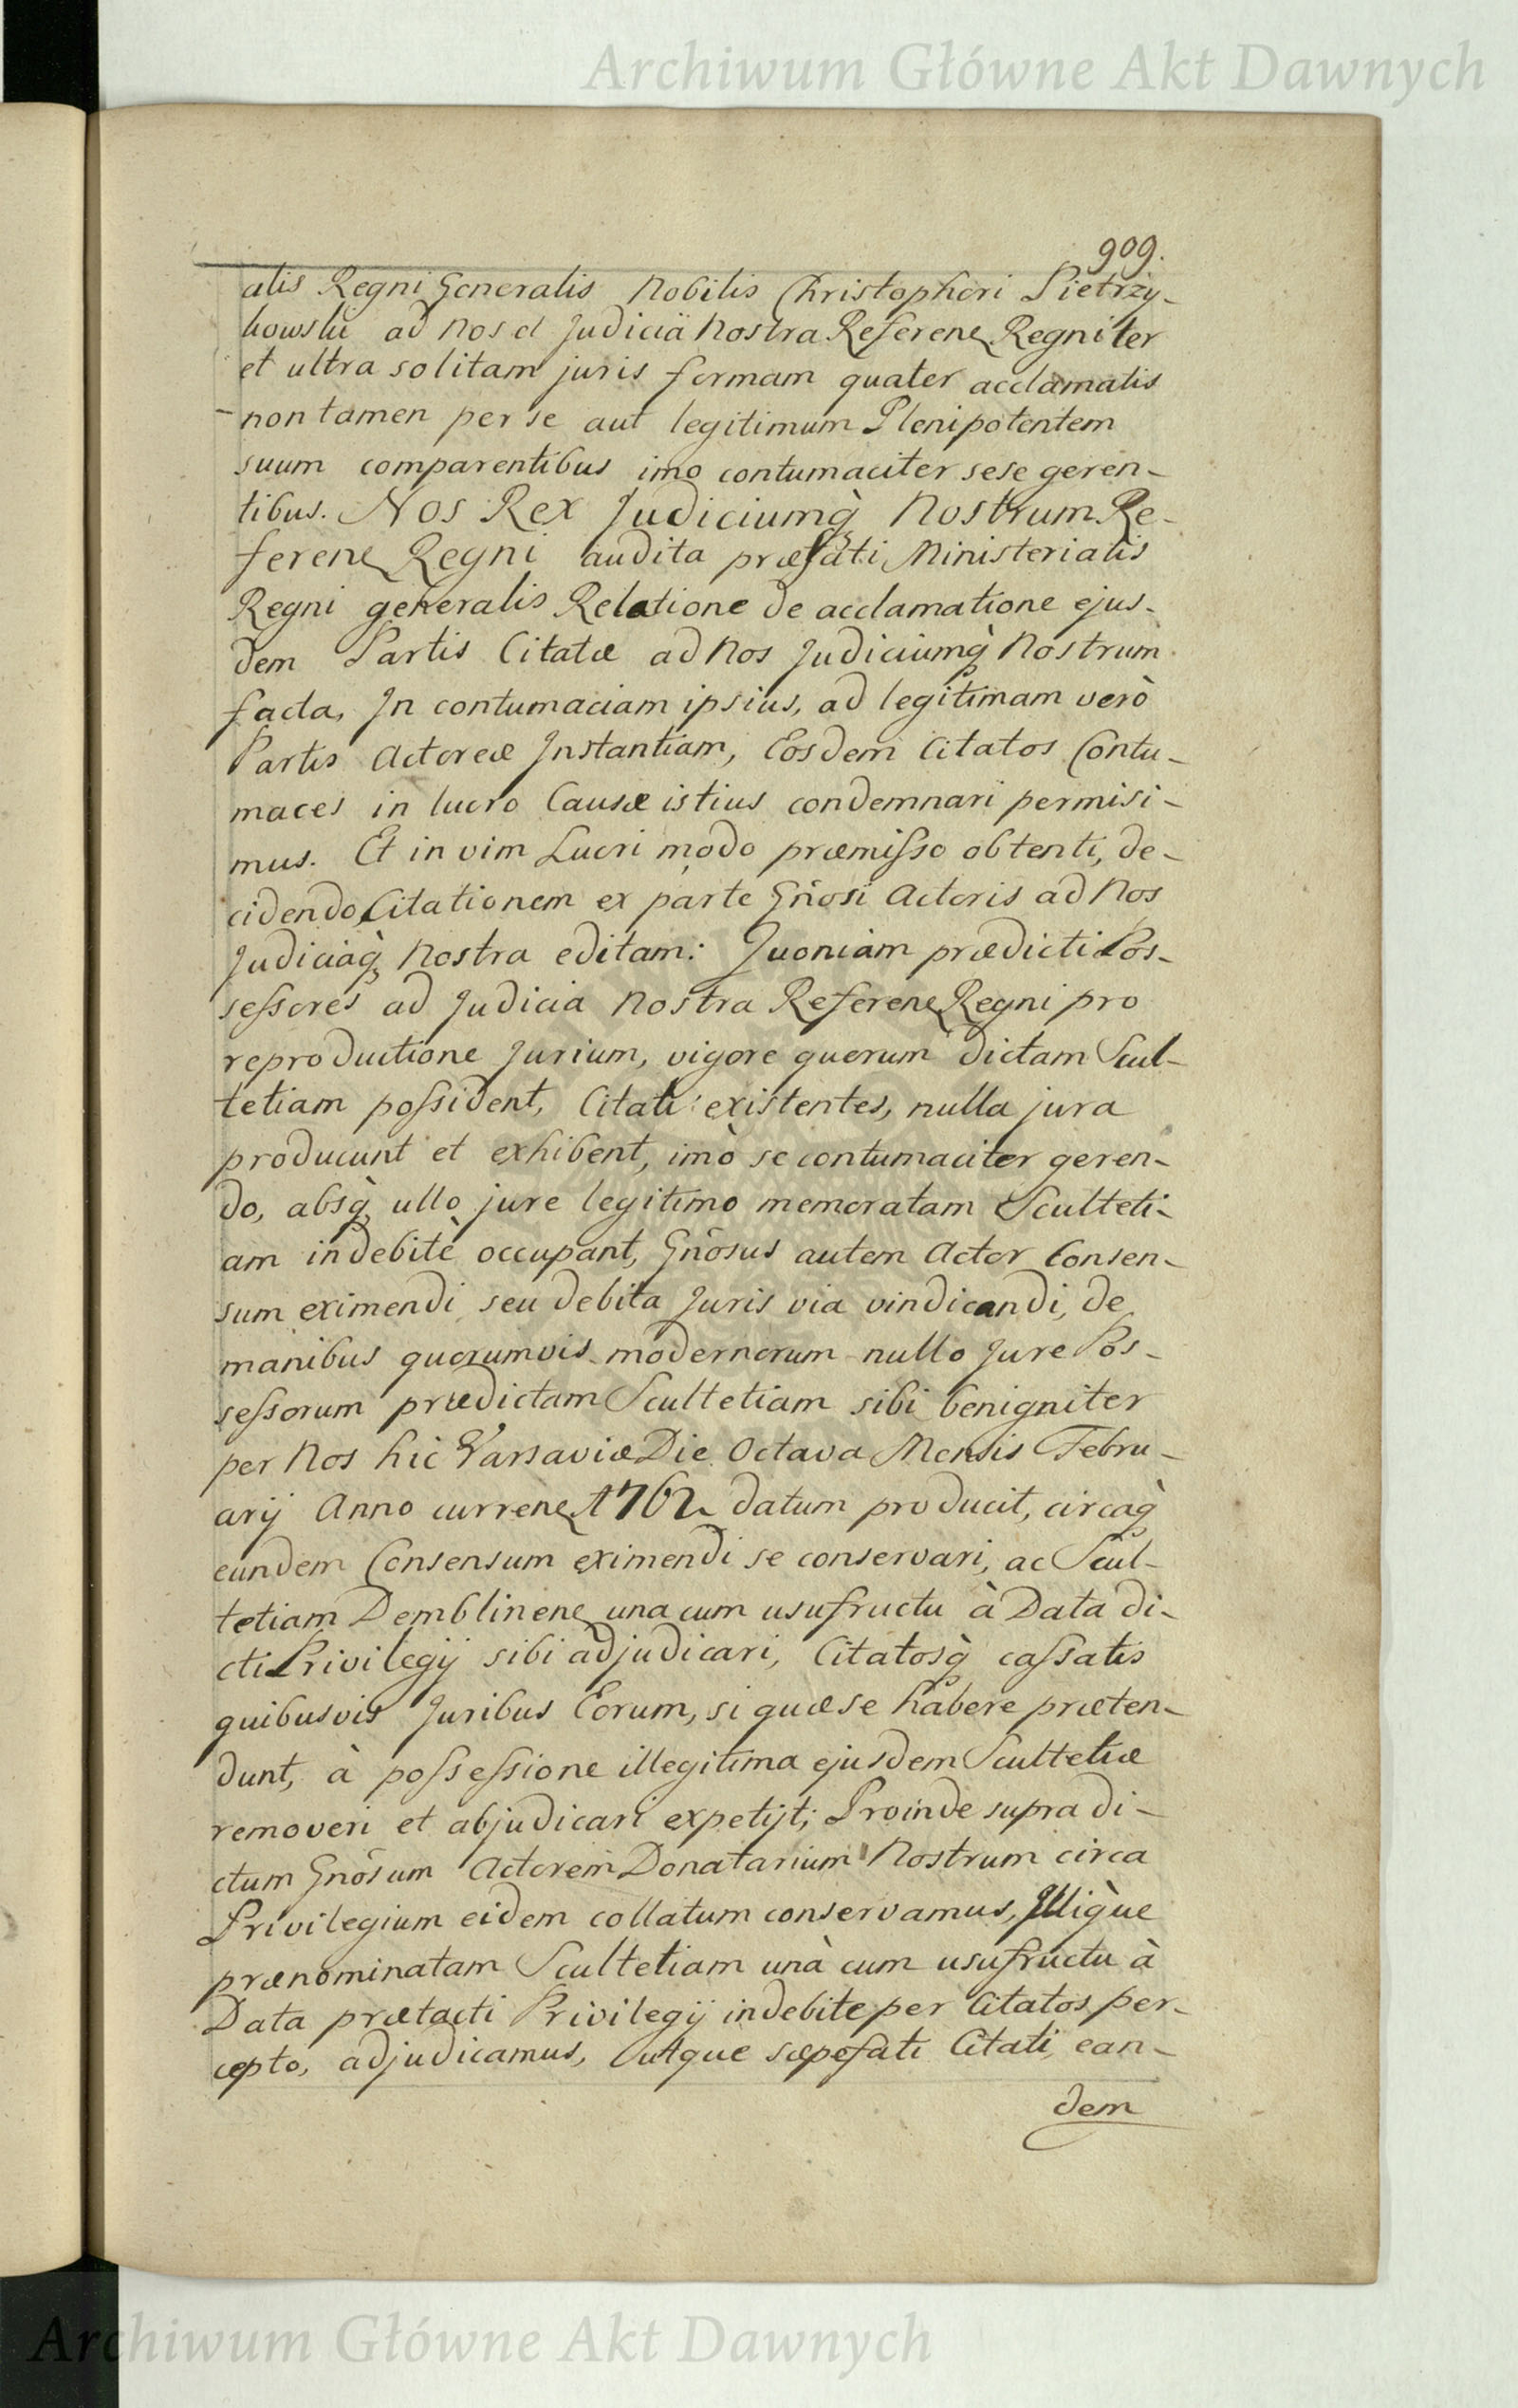 Archiwum Główne Akt Dawnych
909.
alis Regni Generalis Nobilis Christophori Pietrzy-
kowski ad Nos et Judicia Nostra Referen Regni ter
et ultra solitam juris formam quater acclamatis
non tamen per se aut legitimum Plenipotentem
suum comparentibus imo contumaciter sese geren-
tibus. Nos Rex Judiciumq̀ Nostrum Re-
feren Regni audita præfati Ministerialis
Regni generalis Relatione de acclamatione ejus-
dem Partis Citatæ ad Nos Judiciumq̀ Nostrum
facta, In contumaciam ipsius, ad legitimam verò
Partis Actoreæ Instantiam, Eosdem Citatos Contu-
maces in lucro Causæ istius condemnari permisi-
mus. Et in vim Lucri modo præmiſso obtenti, de-
cidendo Citationem ex parte Gñosi Actoris ad Nos
Judiciaq̀ Nostra editam: Quoniam prædicti Pos-
seſsores ad Judicia Nostra Referen Regni pro
reproductione Jurium, vigore quorum dictam Scul-
tetiam poſsident, Citati existentes, nulla jura
producunt et exhibent, imò se contumaciter geren-
do, absq̀ ullo jure legitimo memoratam Sculteti-
am indebitè occupant, Gñosus autem Actor Consen-
sum eximendi seu debita Juris via vindicandi, de
manibus quorumvis modernorum nullo Jure Pos-
seſsorum prædictam Scultetiam sibi benigniter
per Nos hic Varsaviæ Die Octava Mensis Febru-
arij Anno curren 1762 datum producit, circaq̀
eundem Consensum eximendi se conservari, ac Scul-
tetiam Demblinen una cum usufructu à Data di-
cti Privilegij sibi adjudicari, Citatosq̀ caſsatis
quibusvis Juribus Eorum, si quæ se habere præten-
dunt, à poſseſsione illegitima ejusdem Scultetiæ
removeri et abjudicari expetijt; Proinde supra di-
ctum Gñosum Actorem Donatarium Nostrum circa
Privilegium eidem collatum conservamus, Illiq̀ue
prænominatam Scultetiam unà cum usufructu à
Data prætacti Privilegij indebite per Citatos per-
cepto, adjudicamus, Utque sæpefati Citati, ean-
dem
Archiwum Główne Akt Dawnych